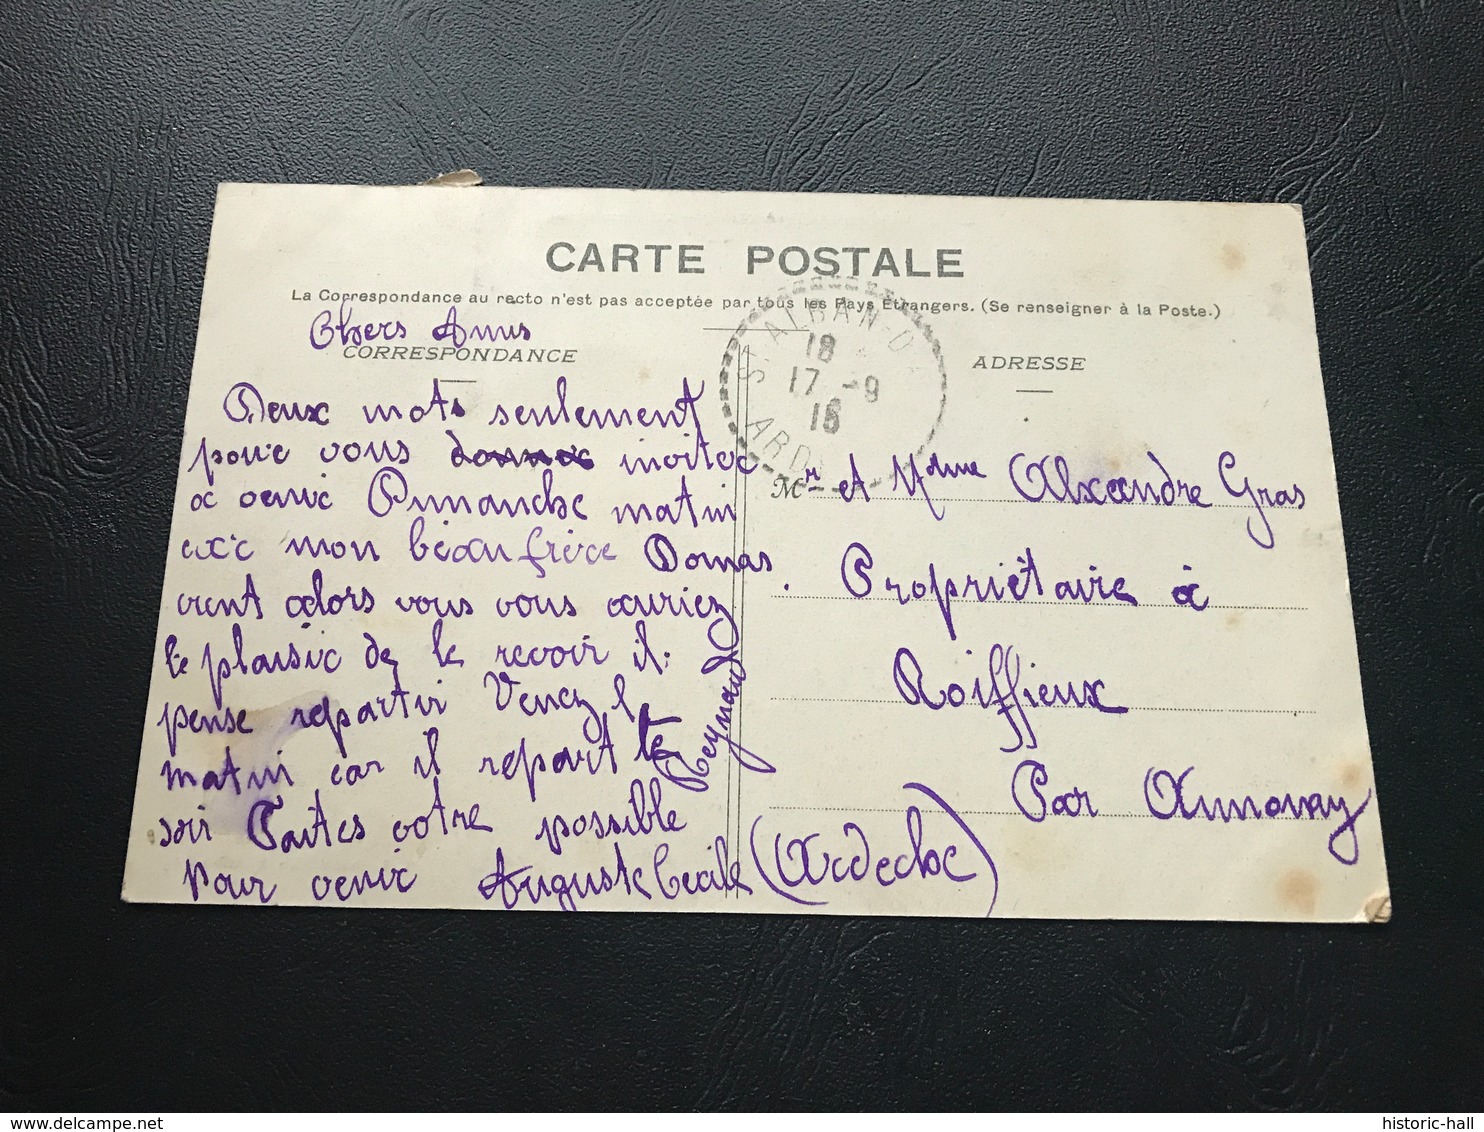 CARTE POSTALE
La Correspondance au recto n'est pas acceptée par tous les Pays Étrangers. (Se renseigner à la Poste.)
Chers Amis
CORRESPONDANCE
Deux mots seulement
pour vous inviter
a venir Dimanche matin
mon beau frère Domas
vient alors vous vous auriez
le plaisir de le revoir il
pense repartir Venez l
matin car il repart le
soir Faites votre possible
pour venir Auguste Cecile
Reynaud
ST ALBAN-D
18
17 -9
15
ARD
ADRESSE
Mr et Mdme Alexandre Gras
Propriétaire à
Roiffieux
Par Annonay
(Ardeche)
historic-hall